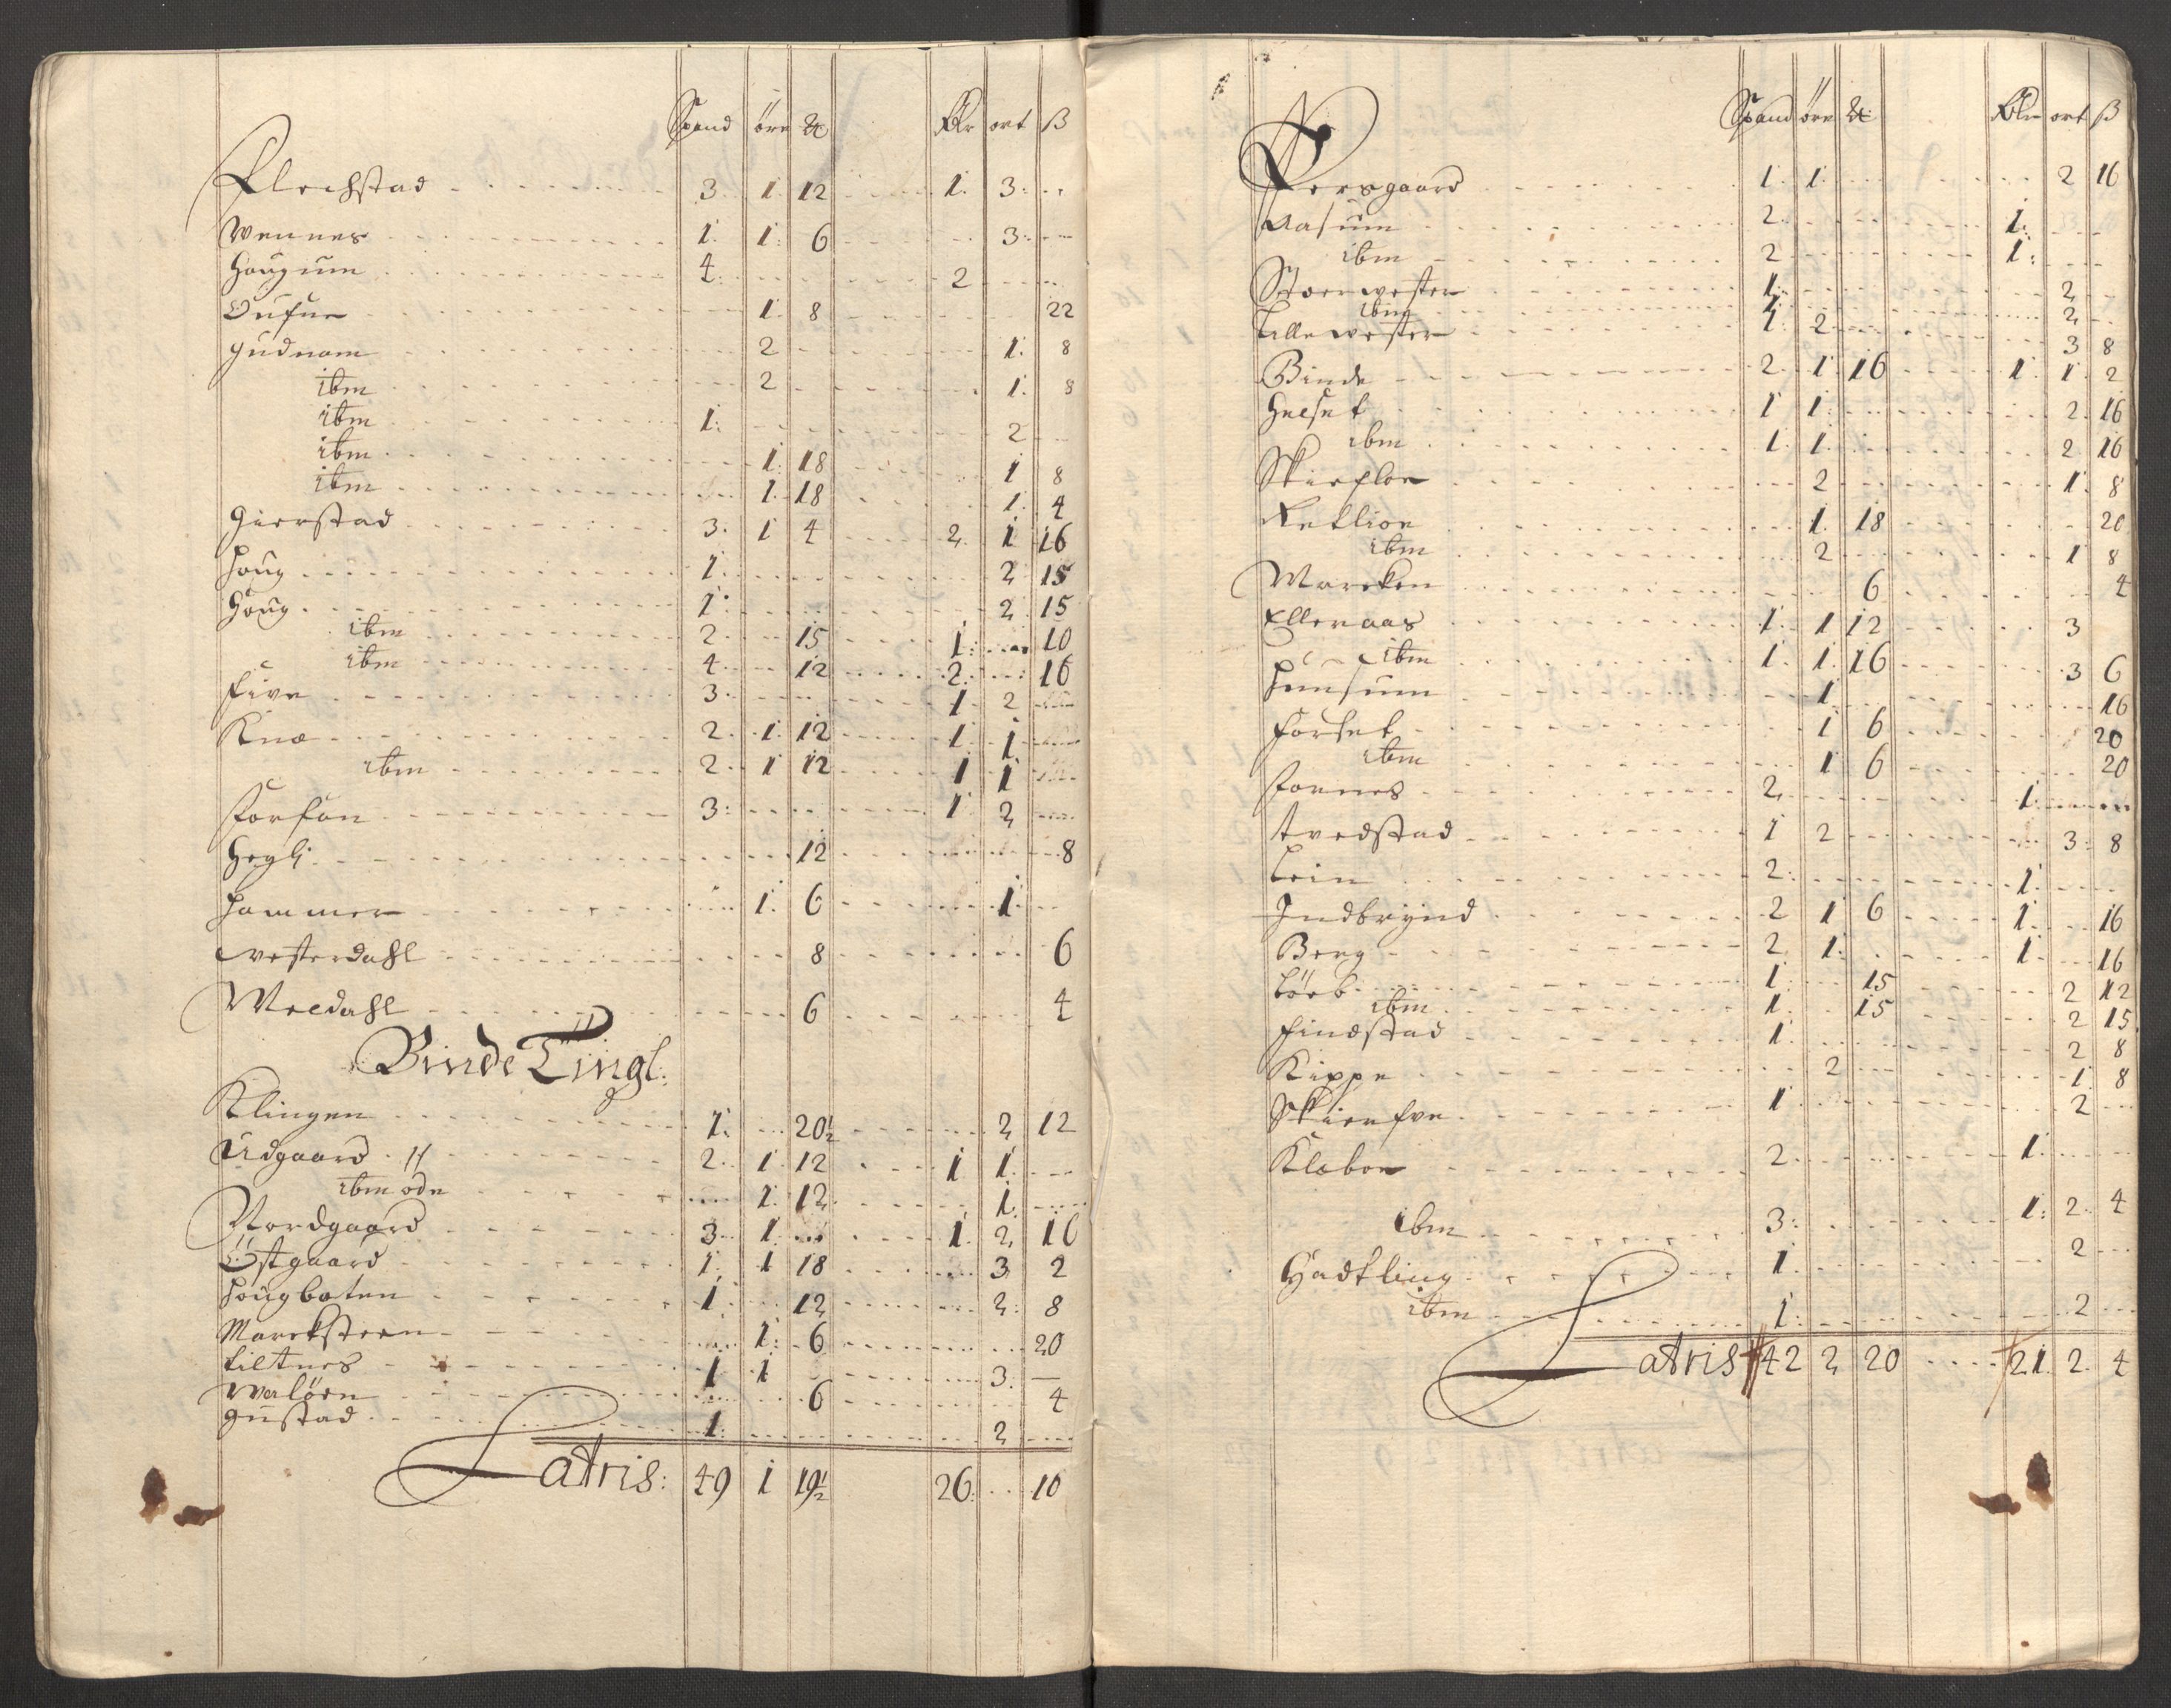 Spand öre ꝳ Rdr ort ß
Flechstad 3 1 12 1 3
Wennes 1 1 6 3
Hougum 4 2
Oufue 1 8 22
Gudnom 2 1 8
ibm 2 1 8
ibm 1 2
ibm 1 18 1 8
ibm 1 18 1 4
Gierstad 3 1 4 2 1 16
Houg 1 2 15
Houg 1 2 15
ibm 2 15 1 10
ibm 4 12 2 16
Five 3 1 2
Knæ 2 1 12 1 1
ibm 2 1 12 1 1
Forfon 3 1 2
Hegli 12 8
Hammer 1 6 1
westerdahl 8 6
Weldahl 6 4
Binde Tingl:
Klingen 1 20½ 2 12
Udgaard 2 1 12 1 1
ibm öde 1 12 1
Nordgaard 3 1 1 2 16
Östgaard 1 1 18 3 2
Hougboten 1 12 2 8
Marcksteen 1 6 20
tiltnes 1 1 3
Walöen 6 4
gustad 1 2
Latris: 49 1 19½ 26 10
Spand öre ꝳ Rdr ort ß
Persgaard 1 1 2 16
Aasum 2 1
ibm 2 1
Stoerwester 1 2
ibm 1 2
Lille wester 1 2 3 8
Binde 2 1 16 1 1 2
Helset 1 1 2 16
ibm 1 1 2 16
Skiefloe 2 1 8
Retlioe 1 18 20
ibm 2 1 8
Marcken 6 4
Elleraas 1 1 12 3
ibm 1 1 16 3 6
Homsum 1 16
Forset 1 6 20
ibm 1 6 20
Fornes 2 1
tvedstad 1 2 3 8
Lein 2 1
Indbrynd 2 1 6 1 16
Berg 2 1 1 16
Lörb 1 15 2 12
ibm 1 15 2 15
Findstad 1 2 8
Kippe 2 1 8
Skierfve 1 2
Klæboe 2 1
ibm 3 1 2 4
Hadtling 1 2
ibm 1 2
Latris 42 2 20 21 2 4